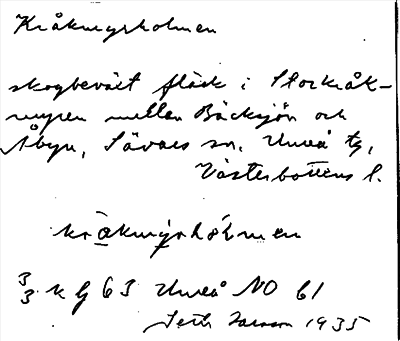 Kråkmyrholmen
skogbeväxt fläck i Storkråk-
myren mellan Bäcksjön och
Åbyn, Sävars sn, Umeå tg,
Västerbottens l.
kråkmyrhólmen
3/3 k g 63 Umeå NO 61
Seth Larsson 1935